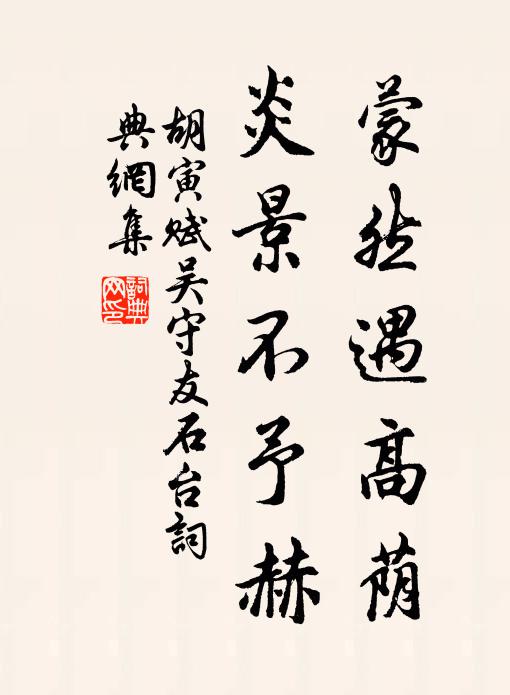 蒙然遇高荫
炎景不予赫
胡寅赋吴守友石台詞
典網集
詞典
网印